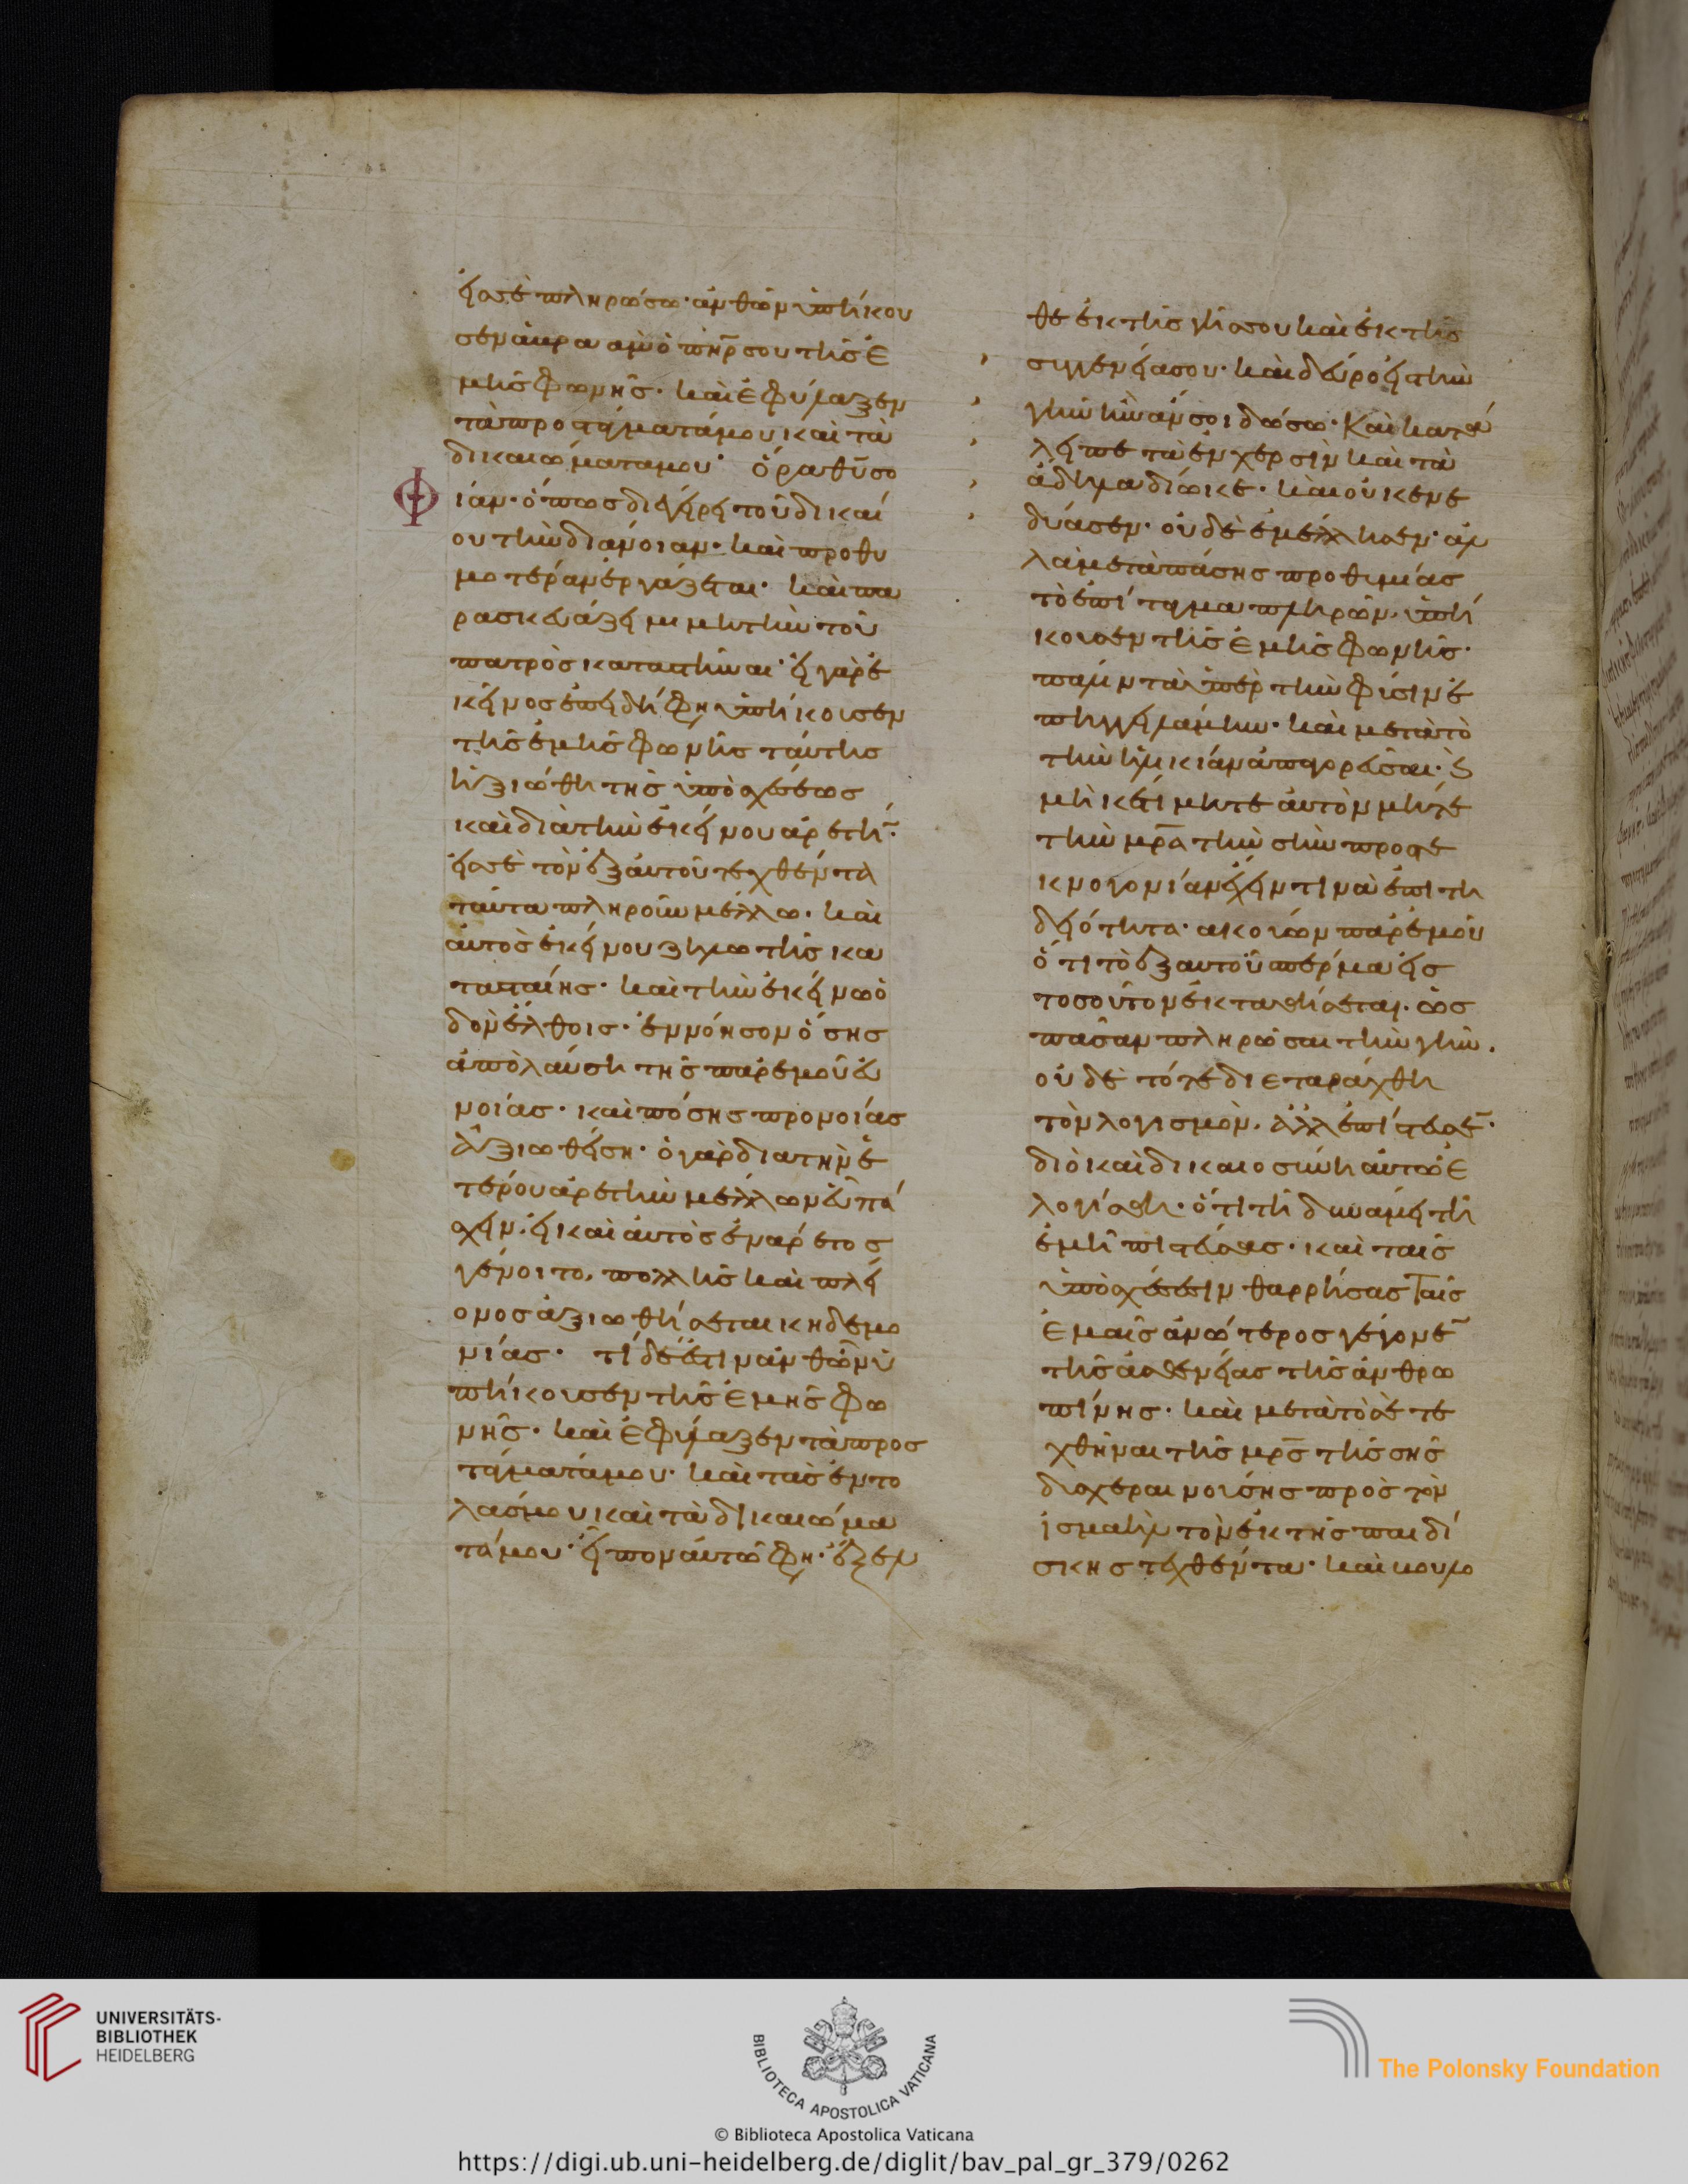 εἰς σὲ πληρώσω· ἀνθῶν ὑπήκου
σεν ἁβρααμ ὁ πηρ σου τῆς ἐ
μῆς φωνῆς· καὶ ἐφύλαξεν
τὰ προστάγματά μου καὶ τὰ
δικαιώματα μου· ὅρα θυ σο
ίαν· ὅπως διεγείρει τοῦ δικαί
ου τὴν διάνοιαν· καὶ προθυ
μοτέραν ἐργάζεται· καὶ πα
ρασκευάζει μιμητὴν τοῦ
πατρὸς καταστῆναι· εἰ γὰρ ἐ
κεῖνος ἐπειδή φη ὑπήκουσεν
τῆς ἐμῆς φωνῆς ταύτης
ἠξιώθη τῆς ὑποσχέσεως
καὶ διὰ τὴν ἐκείνου ἀρετη·
εἰς σὲ τὸν ἐξ αὐτοῦ τεχθέντα
ταῦτα πληροῦν μέλλω· καὶ
αὐτὸς ἐκείνου ζηλωτὴς κα
τασταίης· καὶ τὴν ἐκείνω ὁ
δὸν ἔλθοις· ἐννόησον ὅσης
ἀπολαύση τῆς παρ ἐμοῦ εὐ
νοίας· καὶ πόσης προνοίας
ἀξιωθείση· ὁ γὰρ δια τὴν ἑ
τέρου ἀρετὴν μέλλων εὖ πά
σχειν· εἰ καὶ αὐτὸς ἐνάρετος
γένοιτο, πολλῆς καὶ πλεί
ονος ἀξιωθήσεται κηδεμο
νίας· τί δέ ἐστιν ἀνθῶν ὑ
πήκουσεν τῆς ἐμῆς φω
νῆς· καὶ ἐφύλαξεν τὰ προσ
τάγματά μου· καὶ τὰς ἐντο
λάς μου καὶ τὰ δικαιώμα
τά μου· εἶπον αὐτῶ φη· ἔξελ
θε ἐκ τῆς γῆς σου καὶ ἐκ τῆς
συγγενείας σου· καὶ δεῦρο εἰς τὴν
γῆν ἣν ἄν σοι δώσω· Καὶ κατέ
λειπε τὰ ἐν χερσὶν καὶ τὰ
ἄδηλα δίωκε· καὶ οὐκ ἐνε
δύασεν· οὐδὲ ἐμέλλησεν· ἀλ
λὰ μετὰ πάσης προθυμίας
τὸ ἐπίταγμα πληρῶν, ὑπή
κουσεν τῆς ἐμῆς φωνῆς·
πάλιν τὰ ὑπὲρ τὴν φύσιν ἐ
πηγγειλάμην· καὶ μετὰ τὸ
τὴν ἡλικίαν ἀπαγορεῦσαι· Καὶ
μὴκέτι μητε αὐτὸν μήτε
τὴν μρα τὴν σὴν πρὸς τε
κνογονίαν ἔχειν τινὰ ἐπιτη
δειότητα· ακούων παρ ἐμοῦ
ὅτι τὸ ἐξ αυτοῦ σπέρμα εἰς
τοσοῦτον ἐκταθήσεται. ὡς
πᾶσαν πληρῶσαι τὴν γῆν.
οὐδὲ τότε διεταράχθη
τὸν λογισμὸν. ἀλλ ἐπίστευσε·
διὸ καὶ δικαιοσύνη αὐτῶ ἐ
λογίσθη· ὅτι τῆ δυνάμει τῆ
ἐμῆ πιστεύσας· καὶ ταῖς
ὑποσχέσεσιν θαρρήσας Ταῖς
ἐμαῖς ἀνώτερος γέγονε
τῆς ἀσθενείας τῆς ἀνθρω
πίνης· καὶ μετὰ τὸ σὲ τε
χθῆναι τῆς μρς τῆς σῆς
δυσχεραινούσης πρὸς τὸν
ἰσμαὴλ τὸν ἐκ τῆς παιδί
σκης τεχθέντα· καὶ βουλο
UNIVERSITÄTS-
BIBLIOTHEK
HEIDELBERG
BIBLIOTECA APOSTOLICA VATICANA
The Polonsky Foundation
© Biblioteca Apostolica Vaticana
https://digi.ub.uni-heidelberg.de/diglit/bav_pal_gr_379/0262